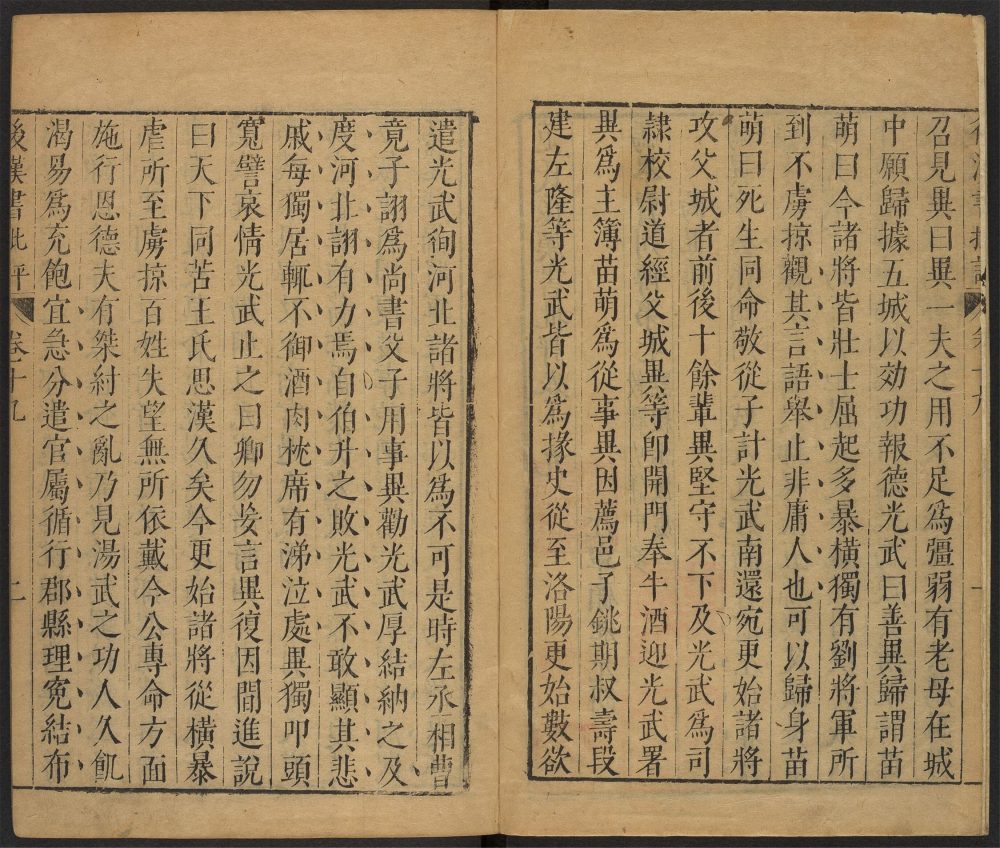 召見異曰異一夫之用不足爲彊弱有老母在城
中願歸據五城以効功報德光武曰善異歸謂苗
萌曰今諸將皆壯士屈起多暴橫獨有劉將軍所
到不虜掠觀其言語舉止非庸人也可以歸身苗
萌曰死生同命敬從子計光武南還宛更始諸將
攻父城者前後十餘輩異堅守不下及光武爲司
隸校尉道經父城異等卽開門奉牛酒迎光武署
異爲主簿苗萌爲從事異因薦邑子銚期叔壽段
建左隆等光武皆以爲掾史從至洛陽更始數欲
遣光武徇河北諸將皆以爲不可是時左丞相曹
竟子詡爲尚書父子用事異勸光武厚結納之及
度河北詡有力焉自伯升之敗光武不敢顯其悲
戚每獨居輒不御酒肉枕席有涕泣處異獨叩頭
寬譬哀情光武止之曰卿勿妄言異復因間進說
曰天下同苦王氏思漢久矣今更始諸將從橫暴
虐所至虜掠百姓失望無所依戴今公專命方面
施行恩德夫有桀紂之亂乃見湯武之功人久飢
渴易爲充飽宜急分遣官屬循行郡縣理寃結布
後漢書批評 卷十九 二